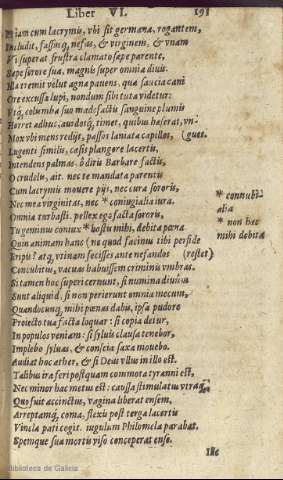 Liber VI. 191
Etiam cum lacrymis, vbi sit germana, rogantem,
Includit, fassusq; nefas, & virginem, & vnam
Vi superat frustra clamato sæpe parente,
Sæpe sorore sua, magnis super omnia diuis.
Illa tremit velut agna pauens, quæ saucia cani
Ore excussa lupi, nondum sibi tuta videtur:
Vtq; columba suo madefactis sanguine plumis
Horret adhuc, auidosq; timet, quibus hæserat, vn-
Mox vbi mens redijt, passos laniata capillos, (gues.
Lugenti similis, cæsis plangore lacertis,
Intendens palmas. ô diris Barbare factis,
O crudelis, ait. nec te mandata parentis
Cum lacrymis mouere pijs, nec cura sororis,
Nec mea virginitas, nec * coniugialia iura.
* connubi-
alia
Omnia turbasti. pellex ego facta sororis,
Tu geminus coniux * hostis mihi, debita pœna
* non hæc
mihi debita
Quin animam hanc (ne quod facinus tibi perfide
Eripis? atq; vtinam fecisses ante nefandos (restet)
Concubitus, vacuas habuissem criminis vmbras.
Si tamen hoc superi cernunt, si numina diuûm
Sunt aliquid, si non perierunt omnia mecum,
Quandocunq; mihi pœnas dabis, ipsa pudore
Proiecto tua facta loquar: si copia detur,
In populos veniam: si syluis clausa tenebor,
Implebo syluas, & conscia saxa mouebo.
Audiat hæc æther, & si Deus vllus in illo est.
Talibus ira feri postquam commota tyranni est,
Nec minor hac metus est: caussa stimulatus vtraq;
Quo fuit accinctus, vagina liberat ensem,
Arreptamq; coma, flexis post terga lacertis
Vincla pati cogit. iugulum Philomela parabat.
Spemque suæ mortis viso conceperat ense.
Ille
Biblioteca de Galicia